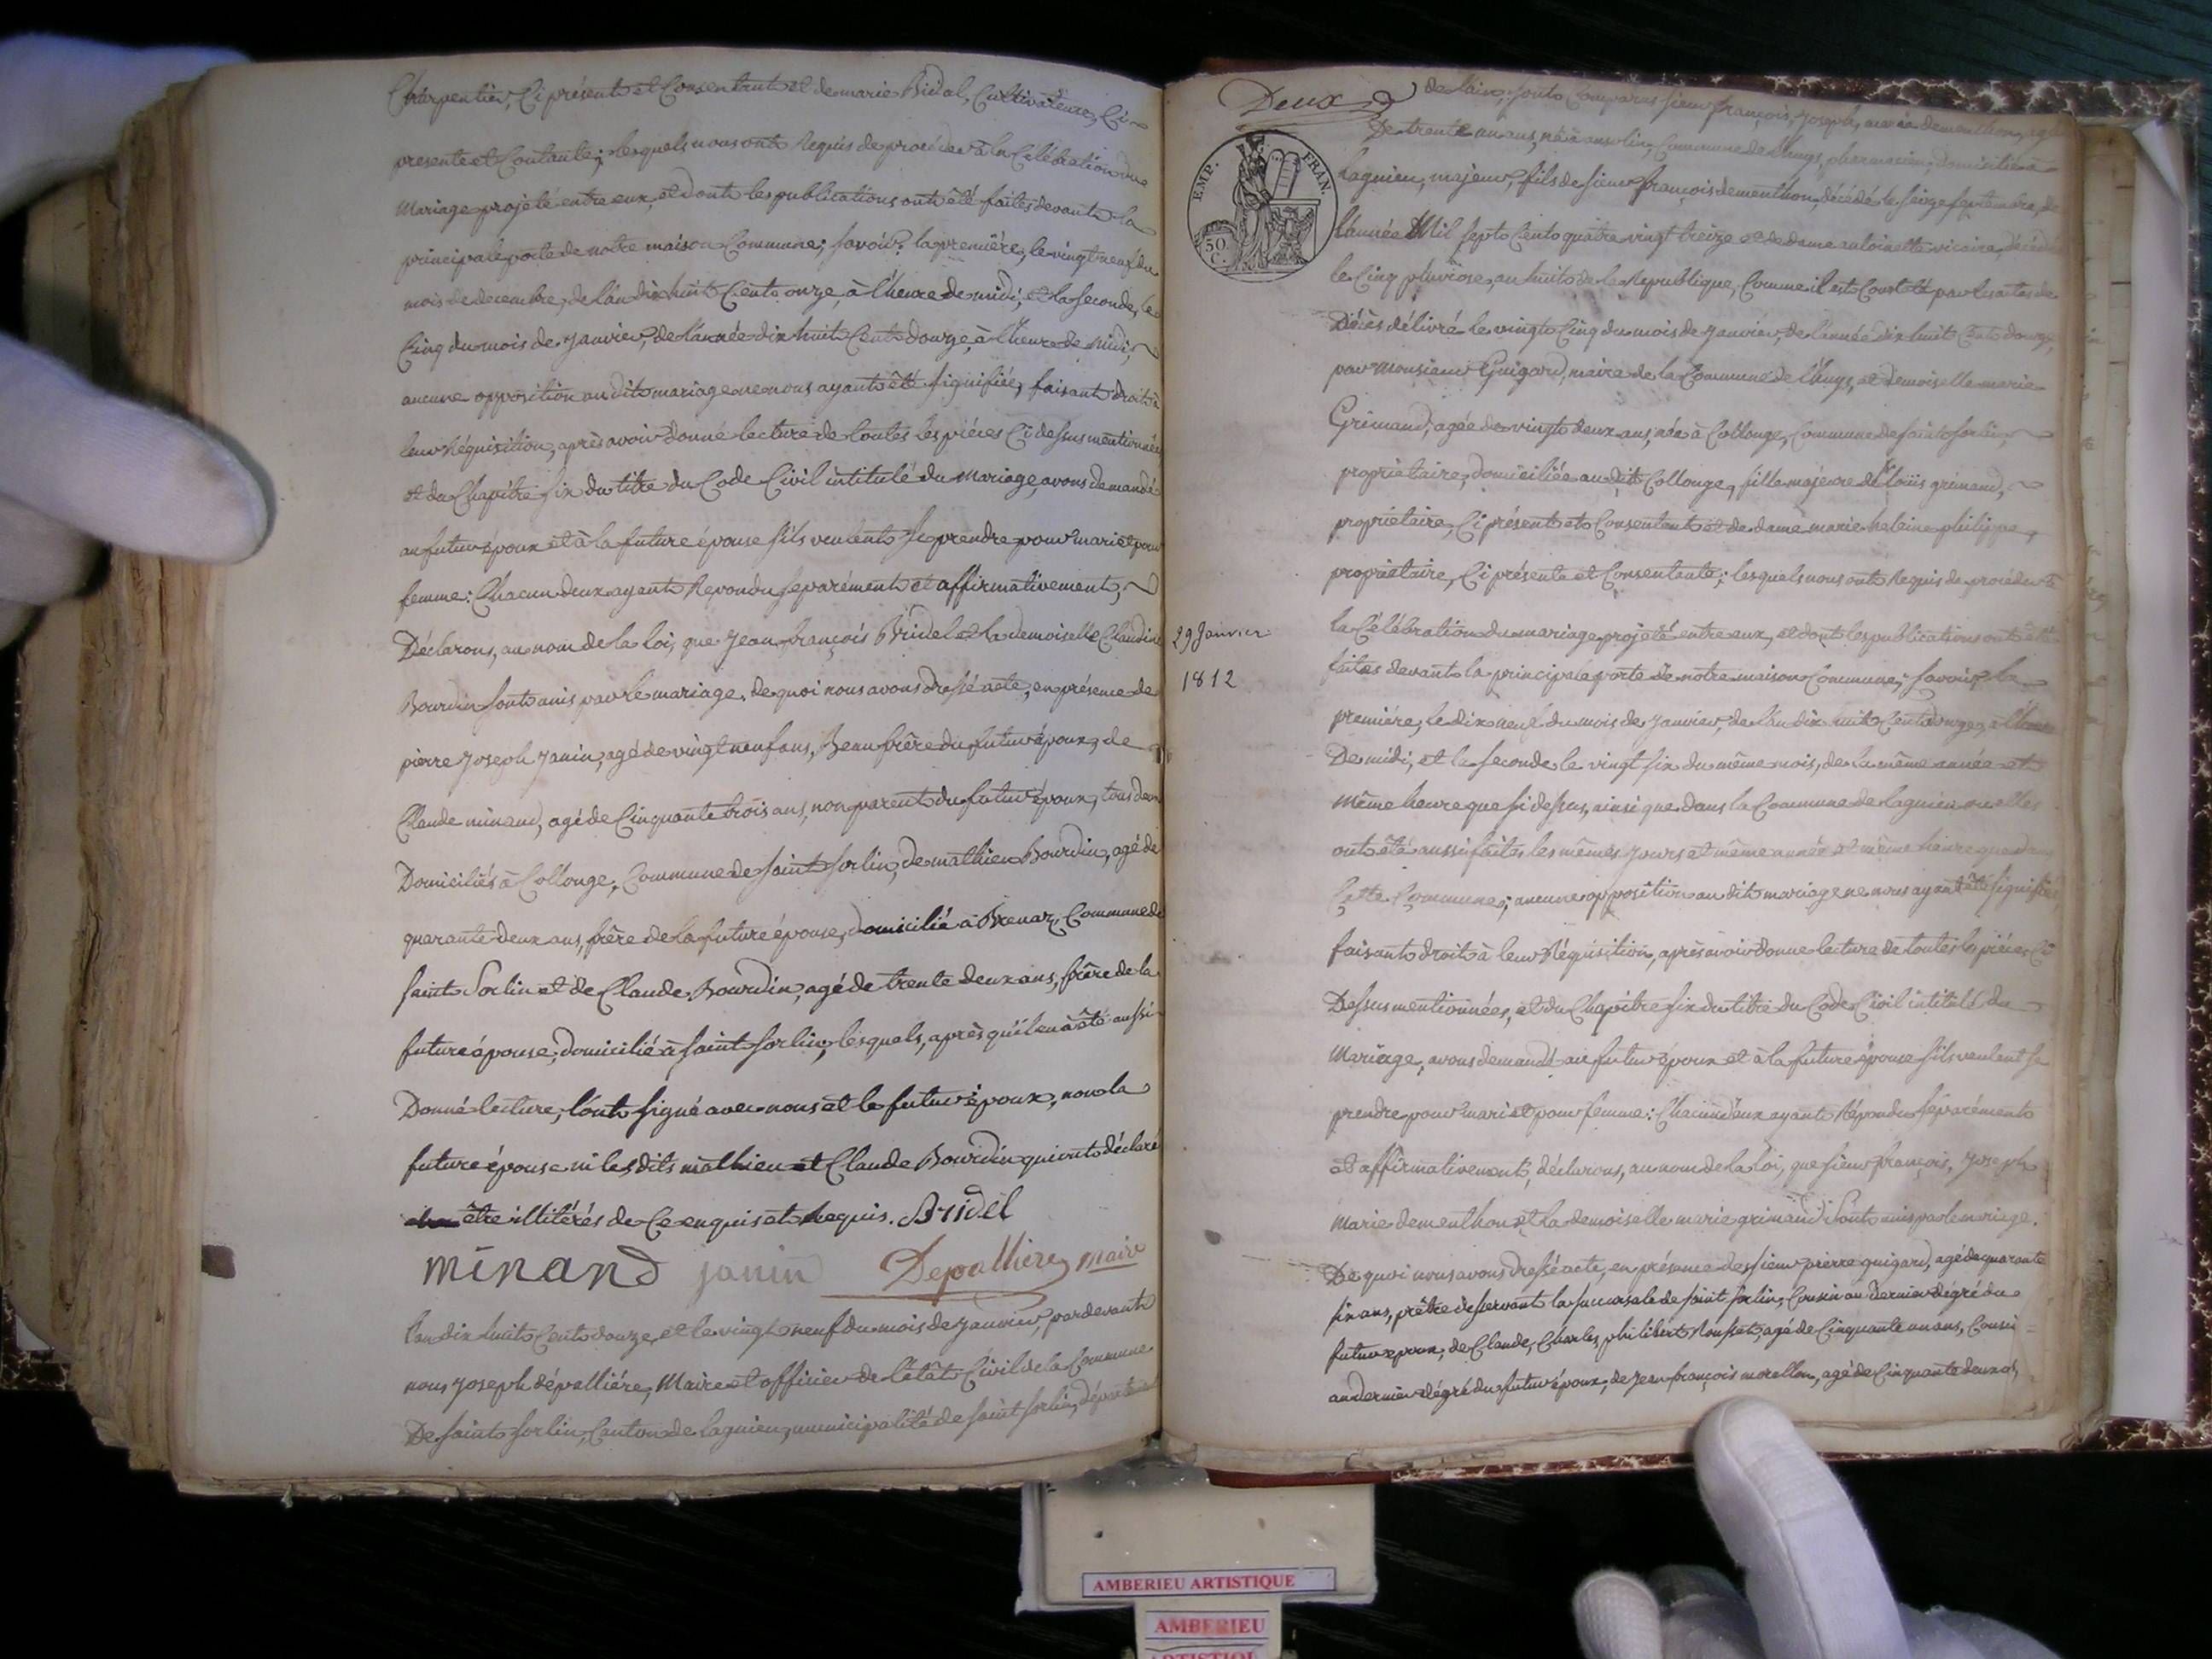 Charpentier, Ci présent et Consentant et de marie Bidal, Cultivateurs, Ci-
presente et Contante; lesquels nous ont Requis de procéder à la Célébration du
Mariage projeté entre eux, et dont les publications ont été faites devant la
principale porte de notre maison Commune; savoir: la premiére, le vingt neuf du
mois de decembre, de l'an dix huit Cent onze, à l'heure de midi, et la seconde, le
Cinq du mois de Janvier, de l'année dix huit Cent douze, à l'heure de midi,
aucune opposition au dit mariage ne nous ayant été signifiée, faisant droit à
leur Réquisition, après avoir donné lecture de toutes les piéces Ci dessus mentionnées
et du Chapitre six du titre du Code Civil intitulé du Mariage, avons demandé
au futur époux et à la future épouse s'ils veulent se prendre pour mari et pour
femme: Chacun deux ayant Repondu separément et affirmativement,
Déclarons, au nom de la loi, que Jean françois Bridel et la demoiselle Claudine
Bourdin sont unis par le mariage. de quoi nous avons dressé acte, en présence de
pierre Joseph Janin, agé de vingt neuf ans, Beau frère du futur époux, de
Claude minand, agé de Cinquante trois ans, non parent du futur époux, tous deux
Domiciliés à Collonge, Commune de saint sorlin, de mathieu Bourdin, agé de
quarante deux ans, frère de la future épouse, domicilié à Brenaz, Commune de
saint Sorlin et de Claude Bourdin, agé de trente deux ans, frère de la
future épouse, domicilié à saint sorlin, lesquels, après qu'il en a été aussi
Donné lecture, l'ont signé avec nous et le futur époux, non la
future épouse ni les dits mathieu et Claude Bourdin qui ont déclaré
être illitérés de Ce enquis et Requis. Bridel
minand janin Depalliere, maire
l'an dix huit Cent douze, et le vingt neuf du mois de Janvier, pardevant
nous Joseph dépalliére, Maire et officier de l'état Civil de la Commune
De saint sorlin, Canton de lagnieu, municipalité de saint sorlin, département
Deux
EMP. FRAN.
50 C.
29 Janvier
1812
de l'ain, sont Comparus sieur françois, Joseph, marie dementhon, agé
De trente un ans, né à ansolin, Commune de l'huys, pharmacien, domicilié à
lagnieu, majeur, fils de sieur françois dementhon, décédé le seize septembre, de
l'année Mil sept Cent quatre vingt treize et de dame antoinette vicaire, décédée
le Cinq pluviose, an huit de la Republique, Comme il est Constaté par les actes de
Décès délivré le vingt Cinq du mois de Janvier, de l'année dix huit Cent douze,
par Monsieur Guigard, maire de la Commune de l'huys, et demoiselle marie
Grimand, agée de vingt deux ans, née à Collonge, Commune de saint sorlin,
propriétaire, domiciliée au dit Collonge, fille majeure de Sr louis grimand,
propriétaire, Ci présent et Consentant et de dame marie helaine philippe,
propriétaire, Ci présente et Consentante; lesquels nous ont Requis de procéder à
la Célébration du mariage projeté entre eux, et dont les publications ont été
faites devant la principale porte de notre maison Commune, savoir: la
premiére, le dix neuf du mois de Janvier, de l'an dix huit Cent douze, à l'heure
De midi, et la seconde le vingt six du même mois, de la même année et
même heure que si dessus, ainsi que dans la Commune de lagnieu ou elles
ont été aussi faites les mêmes jours et même année et même heure que dans
Cette Commune; aucune opposition au dit mariage ne nous ayant été signifiée,
faisant droit à leur Réquisition, après avoir donné lecture de toutes les piéces Ci
Dessus mentionnées, et du Chapitre six du titre du Code Civil intitulé du
Mariage, avons demandé au futur époux et à la future épouse s'ils veulent se
prendre pour mari et pour femme: Chacun d'eux ayant Répondu séparément
et affirmativement, déclarons, au nom de la loi, que sieur françois, Joseph
Marie dementhon et la demoiselle marie grimand Sont unis par le mariage.
De quoi nous avons dressé acte, en présence des sieur pierre guigard, agé de quarante
six ans, prêtre desservant la succursale de saint sorlin, Cousin au dernier dégré du
futur époux, de Claude, Charles, philibert Rousset, agé de Cinquante un ans, Cousin
au dernier dégré du futur époux, de Jean françois morellon, agé de Cinquante deux ans,
AMBERIEU ARTISTIQUE
AMBERIEU
ARTISTIQUE